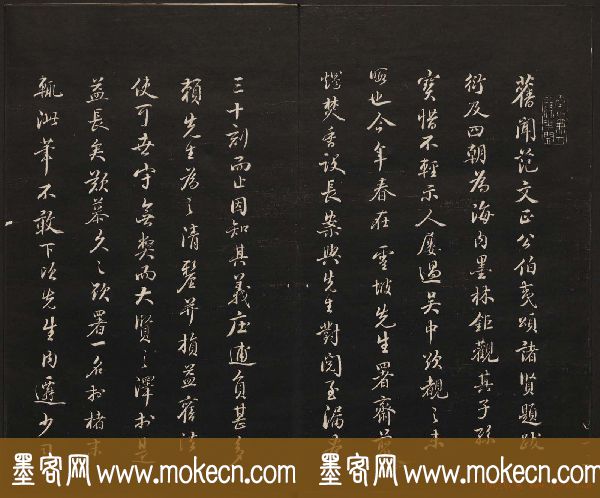 舊聞范文正公伯夷頌諸賢題跋
衍及四朝為海內墨林鉅觀其子孫
寶惜不輕示人屢過吳中欲觀之未
也今年春在雪坡先生署齋
焚香設長案與先生對閱至漏
三十刻而止因知其義庄逋負甚多
賴先生為之清釐并損益舊法
使可世守無弊而大賢之澤於是
益長矣歎慕久之欲署一名於楮末
輒泚筆不敢下次先生內遷少
墨客网 www.mokecn.com 墨客网 www.mokecn.com